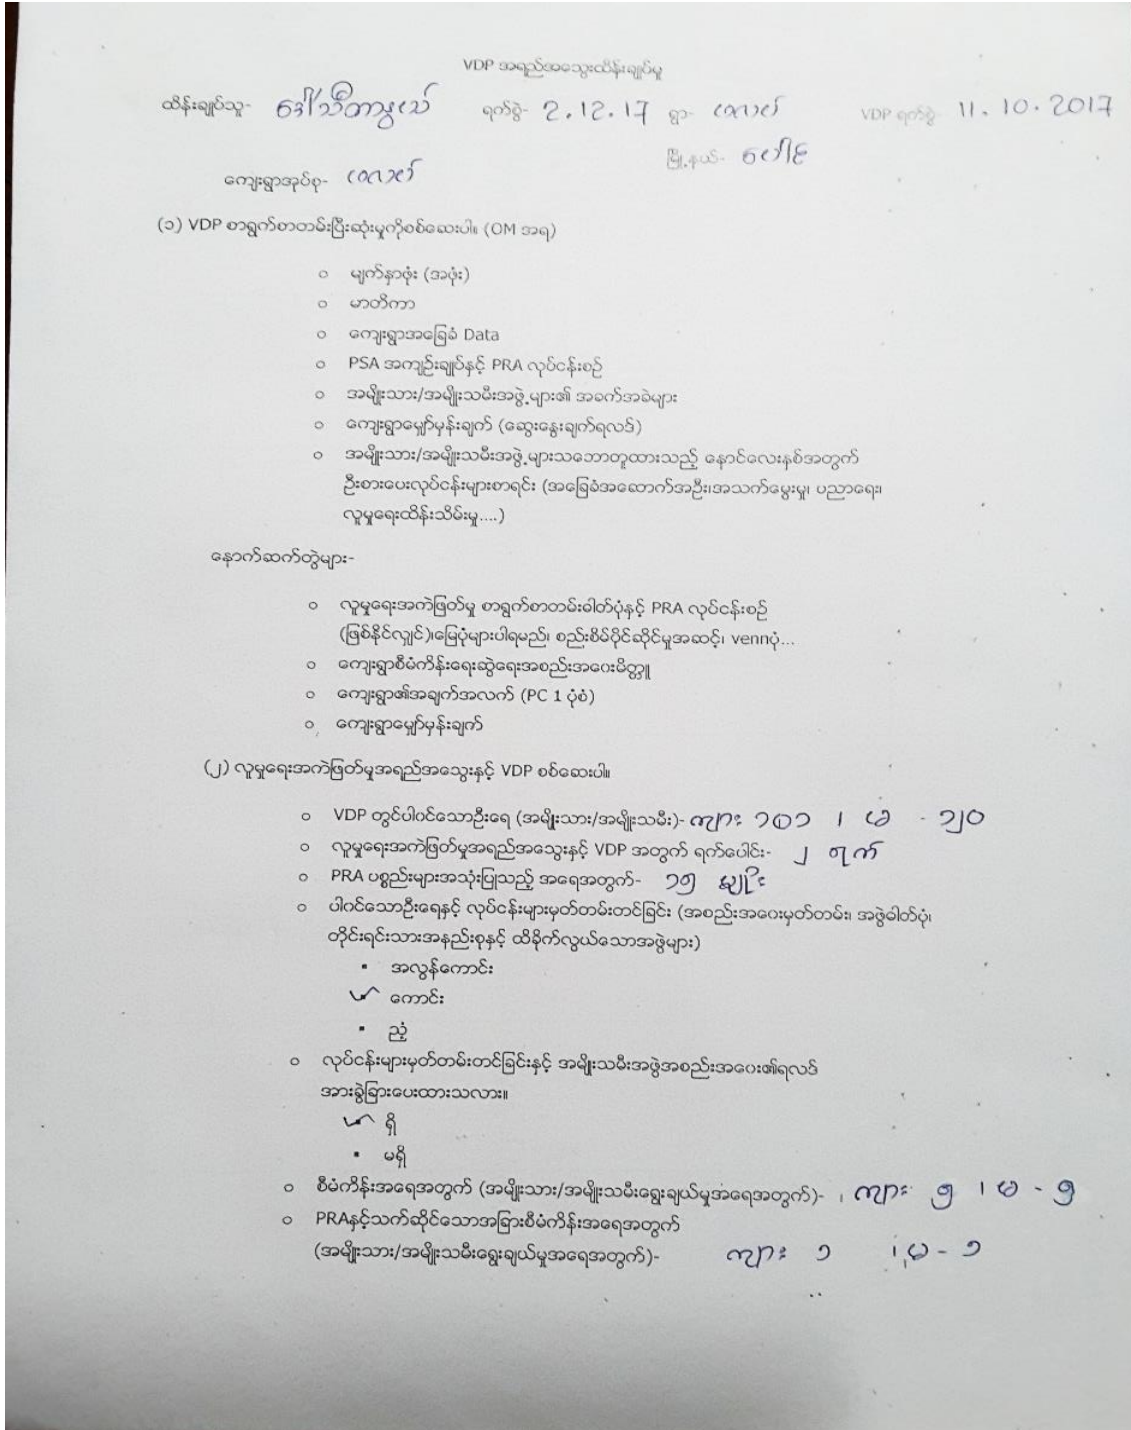 VDP အရည်အသွေးထိန်းချုပ်မှု
ထိန်းချုပ်သူ- ဒေါ်သီတာနွယ် ရက်စွဲ- 2.12.17 ရွာ- VDP ရက်စွဲ 11.10.2017
မြို့နယ်- ပေါင်
ကျေးရွာအုပ်စု-
(၁) VDP စာရွက်စာတမ်းပြီးဆုံးမှုကိုစစ်ဆေးပါ။ (OM အရ)
○ မျက်နှာဖုံး (အဖုံး)
○ မာတိကာ
○ ကျေးရွာအခြေခံ Data
○ PSA အကျဉ်းချုပ်နှင့် PRA လုပ်ငန်းစဉ်
○ အမျိုးသား/အမျိုးသမီးအဖွဲ့များ၏ အခက်အခဲများ
○ ကျေးရွာမျှော်မှန်းချက် (ဆွေးနွေးချက်ရလဒ်)
○ အမျိုးသား/အမျိုးသမီးအဖွဲ့များသဘောတူထားသည့် နောင်လေးနှစ်အတွက်
ဦးစားပေးလုပ်ငန်းများစာရင်း (အခြေခံအဆောက်အဦး၊အသက်မွေးမှု၊ ပညာရေး၊
လူမှုရေးထိန်းသိမ်းမှု....)
နောက်ဆက်တွဲများ-
○ လူမှုရေးအကဲဖြတ်မှု စာရွက်စာတမ်းဓါတ်ပုံနှင့် PRA လုပ်ငန်းစဉ်
(ဖြစ်နိုင်လျှင်)၊မြေပုံများပါရမည်၊ စည်းစိမ်ပိုင်ဆိုင်မှုအဆင့်၊ vennပုံ...
○ ကျေးရွာစီမံကိန်းရေးဆွဲရေးအစည်းအဝေးမိတ္တူ
○ ကျေးရွာ၏အချက်အလက် (PC 1 ပုံစံ)
○ ကျေးရွာမျှော်မှန်းချက်
(၂) လူမှုရေးအကဲဖြတ်မှုအရည်အသွေးနှင့် VDP စစ်ဆေးပါ။
○ VDP တွင်ပါဝင်သောဦးရေ (အမျိုးသား/အမျိုးသမီး)- ကျား ၁၀၁ ၊ မ - ၁၂၀
○ လူမှုရေးအကဲဖြတ်မှုအရည်အသွေးနှင့် VDP အတွက် ရက်ပေါင်း- ၂ ရက်
○ PRA ပစ္စည်းများအသုံးပြုသည့် အရေအတွက်- ၁၅ မျိုး
○ ပါဝင်သောဦးရေနှင့် လုပ်ငန်းများမှတ်တမ်းတင်ခြင်း (အစည်းအဝေးမှတ်တမ်း၊ အဖွဲဓါတ်ပုံ၊
တိုင်းရင်းသားအနည်းစုနှင့် ထိခိုက်လွယ်သောအဖွဲများ)
▪ အလွန်ကောင်း
✓ ကောင်း
▪ ညံ့
○ လုပ်ငန်းများမှတ်တမ်းတင်ခြင်းနှင့် အမျိုးသမီးအဖွဲအစည်းအဝေး၏ရလဒ်
အားခွဲခြားပေးထားသလား။
✓ ရှိ
▪ မရှိ
○ စီမံကိန်းအရေအတွက် (အမျိုးသား/အမျိုးသမီးရွေးချယ်မှုအရေအတွက်)- ကျား ၅ ၊ မ - ၅
○ PRAနှင့်သက်ဆိုင်သောအခြားစီမံကိန်းအရေအတွက်
(အမျိုးသား/အမျိုးသမီးရွေးချယ်မှုအရေအတွက်)- ကျား ၁ ၊ မ - ၁